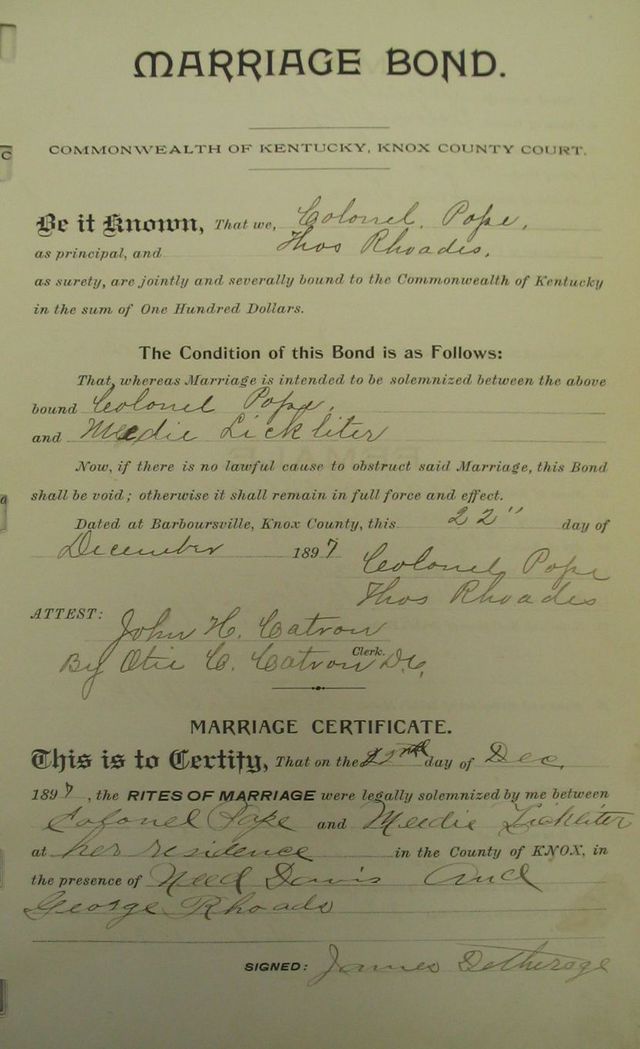 MARRIAGE BOND.
COMMONWEALTH OF KENTUCKY, KNOX COUNTY COURT.
Be it Known, That we, Colonel. Pope,
as principal, and Thos Rhoades,
as surety, are jointly and severally bound to the Commonwealth of Kentucky
in the sum of One Hundred Dollars.
The Condition of this Bond is as Follows:
That, whereas Marriage is intended to be solemnized between the above
bound Colonel Pope,
and Meedie Lickliter
Now, if there is no lawful cause to obstruct said Marriage, this Bond
shall be void; otherwise it shall remain in full force and effect.
Dated at Barboursville, Knox County, this 22" day of
December 1897 Colonel Pope
Thos Rhoades
ATTEST: John H. Catron
By Otie C. Catron Clerk. D.C.
MARRIAGE CERTIFICATE.
This is to Certify, That on the 22nd day of Dec.
1897, the RITES OF MARRIAGE were legally solemnized by me between
Colonel Pope and Meedie Lickliter
at her residence in the County of KNOX, in
the presence of Need Davis and
George Rhoads
SIGNED: James